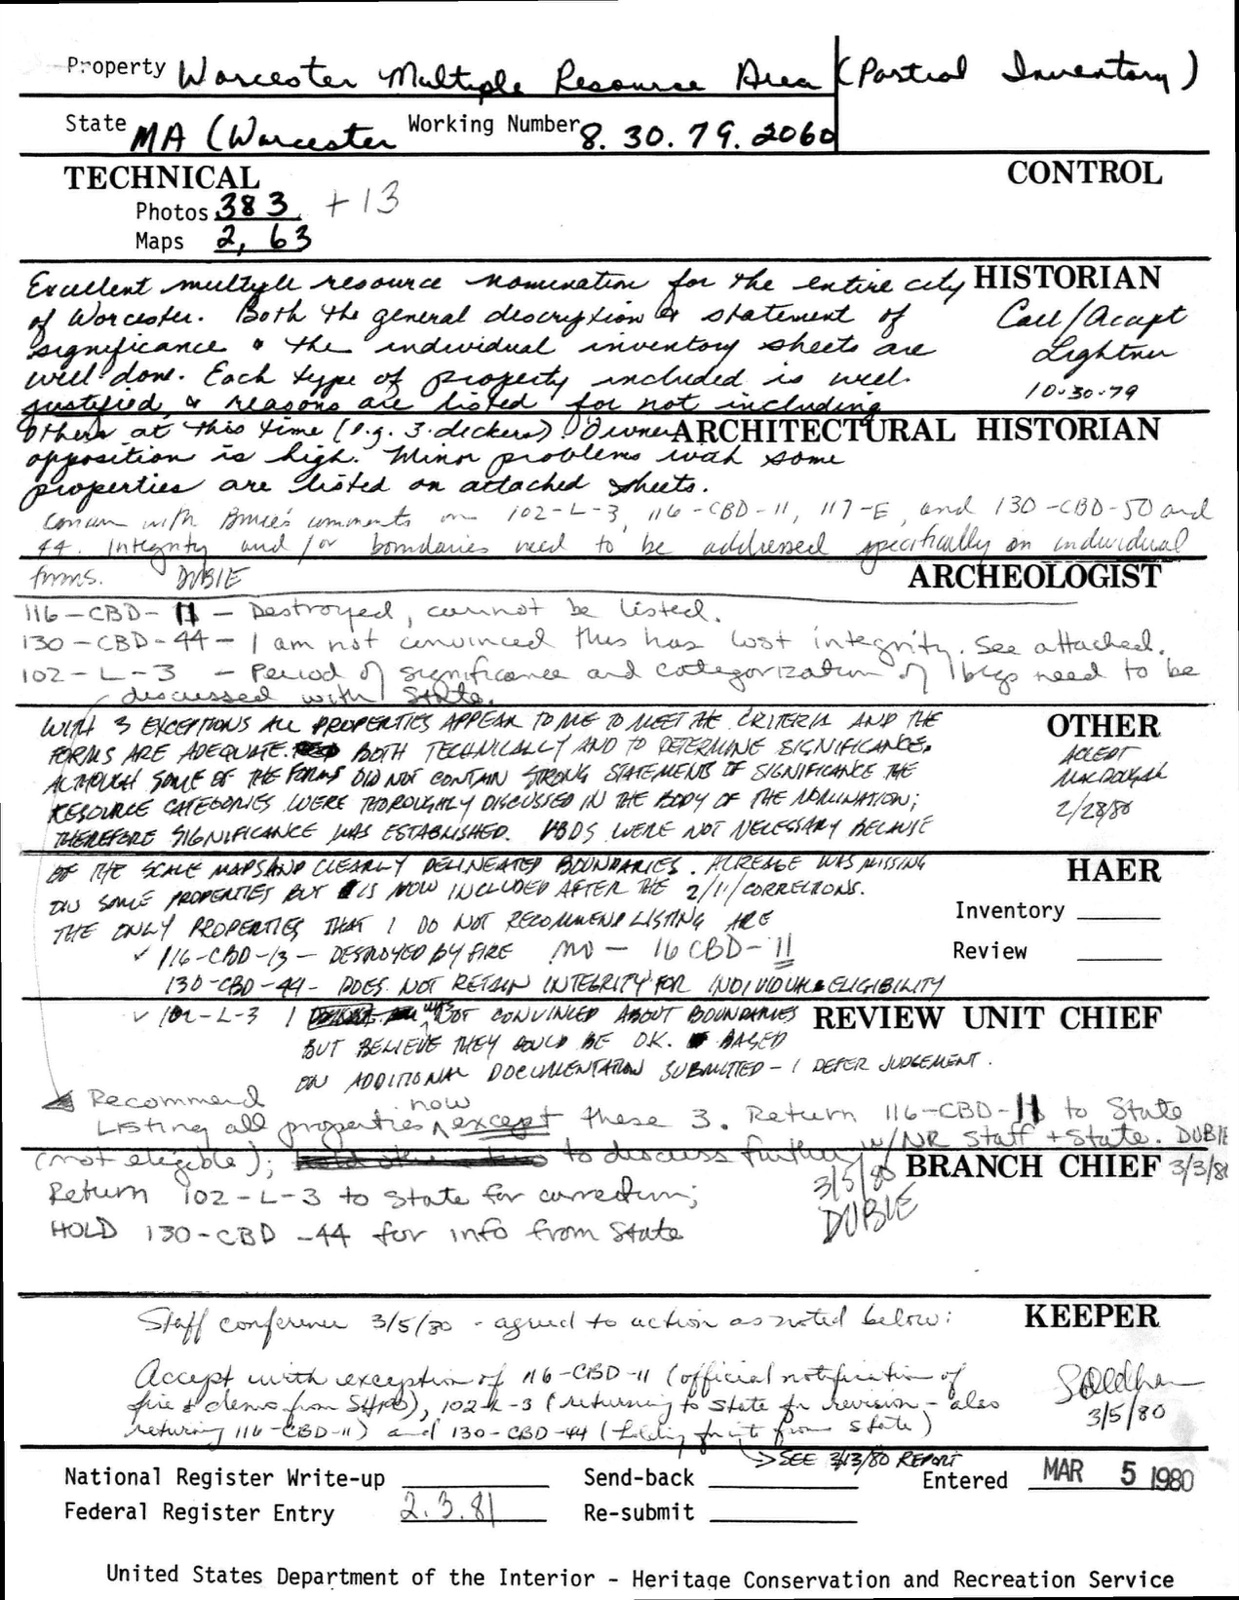 Property Worcester Multiple Resource Area (Partial Inventory)
State MA (Worcester Working Number 8.30.79.2060
TECHNICAL CONTROL
Photos 383 + 13
Maps 2, 63
Excellent multiple resource nomination for the entire city HISTORIAN
of Worcester. Both the general description & statement of Call/Accept
significance & the individual inventory sheets are Lightner
well done. Each type of property included is well 10-30-79
justified & reasons are listed for not including
others at this time (e.g. 3-deckers). Owner ARCHITECTURAL HISTORIAN
opposition is high. Minor problems with some
properties are listed on attached sheets.
Concur with Bruce's comments on 102-L-3, 116-CBD-11, 117-E, and 130-CBD-50 and
44. Integrity and/or boundaries need to be addressed specifically on individual
forms. DUBIE ARCHEOLOGIST
116-CBD-11 - Destroyed, cannot be listed.
130-CBD-44 - I am not convinced this has lost integrity. See attached.
102-L-3 - Period of significance and categorization of bldgs need to be
discussed with State.
WITH 3 EXCEPTIONS ALL PROPERTIES APPEAR TO ME TO MEET THE CRITERIA AND THE OTHER
FORMS ARE ADEQUATE BOTH TECHNICALLY AND TO DETERMINE SIGNIFICANCE. ACCEPT
ALTHOUGH SOME OF THE FORMS DID NOT CONTAIN STRONG STATEMENTS OF SIGNIFICANCE THE MACDOUGAL
RESOURCE CATEGORIES WERE THOROUGHLY DISCUSSED IN THE BODY OF THE NOMINATION; 2/28/80
THEREFORE SIGNIFICANCE WAS ESTABLISHED. VBDS WERE NOT NECESSARY BECAUSE
OF THE SCALE MAPS AND CLEARLY DELINEATED BOUNDARIES. ACREAGE WAS MISSING HAER
ON SOME PROPERTIES BUT IS NOW INCLUDED AFTER THE 2/11/ CORRECTIONS.
THE ONLY PROPERTIES THAT I DO NOT RECOMMEND LISTING ARE Inventory
✓ 116-CBD-13 - DESTROYED BY FIRE NO - 16 CBD-11 Review
130-CBD-44 - DOES NOT RETAIN INTEGRITY FOR INDIVIDUAL ELIGIBILITY
✓ 102-L-3 I WAS NOT CONVINCED ABOUT BOUNDARIES REVIEW UNIT CHIEF
BUT BELIEVE THEY COULD BE OK. BASED
ON ADDITIONAL DOCUMENTATION SUBMITTED - I DEFER JUDGEMENT.
Recommend
Listing all properties now except these 3. Return 116-CBD-11 to State
(not eligible); to discuss further w/NR Staff + State. DUBIE
3/5/80 BRANCH CHIEF 3/3/80
Return 102-L-3 to State for correction; DUBIE
HOLD 130-CBD-44 for info from State
Staff conference 3/5/80 - agreed to action as noted below: KEEPER
Accept with exception of 116-CBD-11 (official notification of
fire & demo from SHPO), 102-L-3 (returning to State for revision - also 3/5/80
returning 116-CBD-11) and 130-CBD-44 (holding for it from State)
> SEE 3/13/80 REPORT
National Register Write-up Send-back Entered MAR 5 1980
Federal Register Entry 2.3.81 Re-submit
United States Department of the Interior - Heritage Conservation and Recreation Service